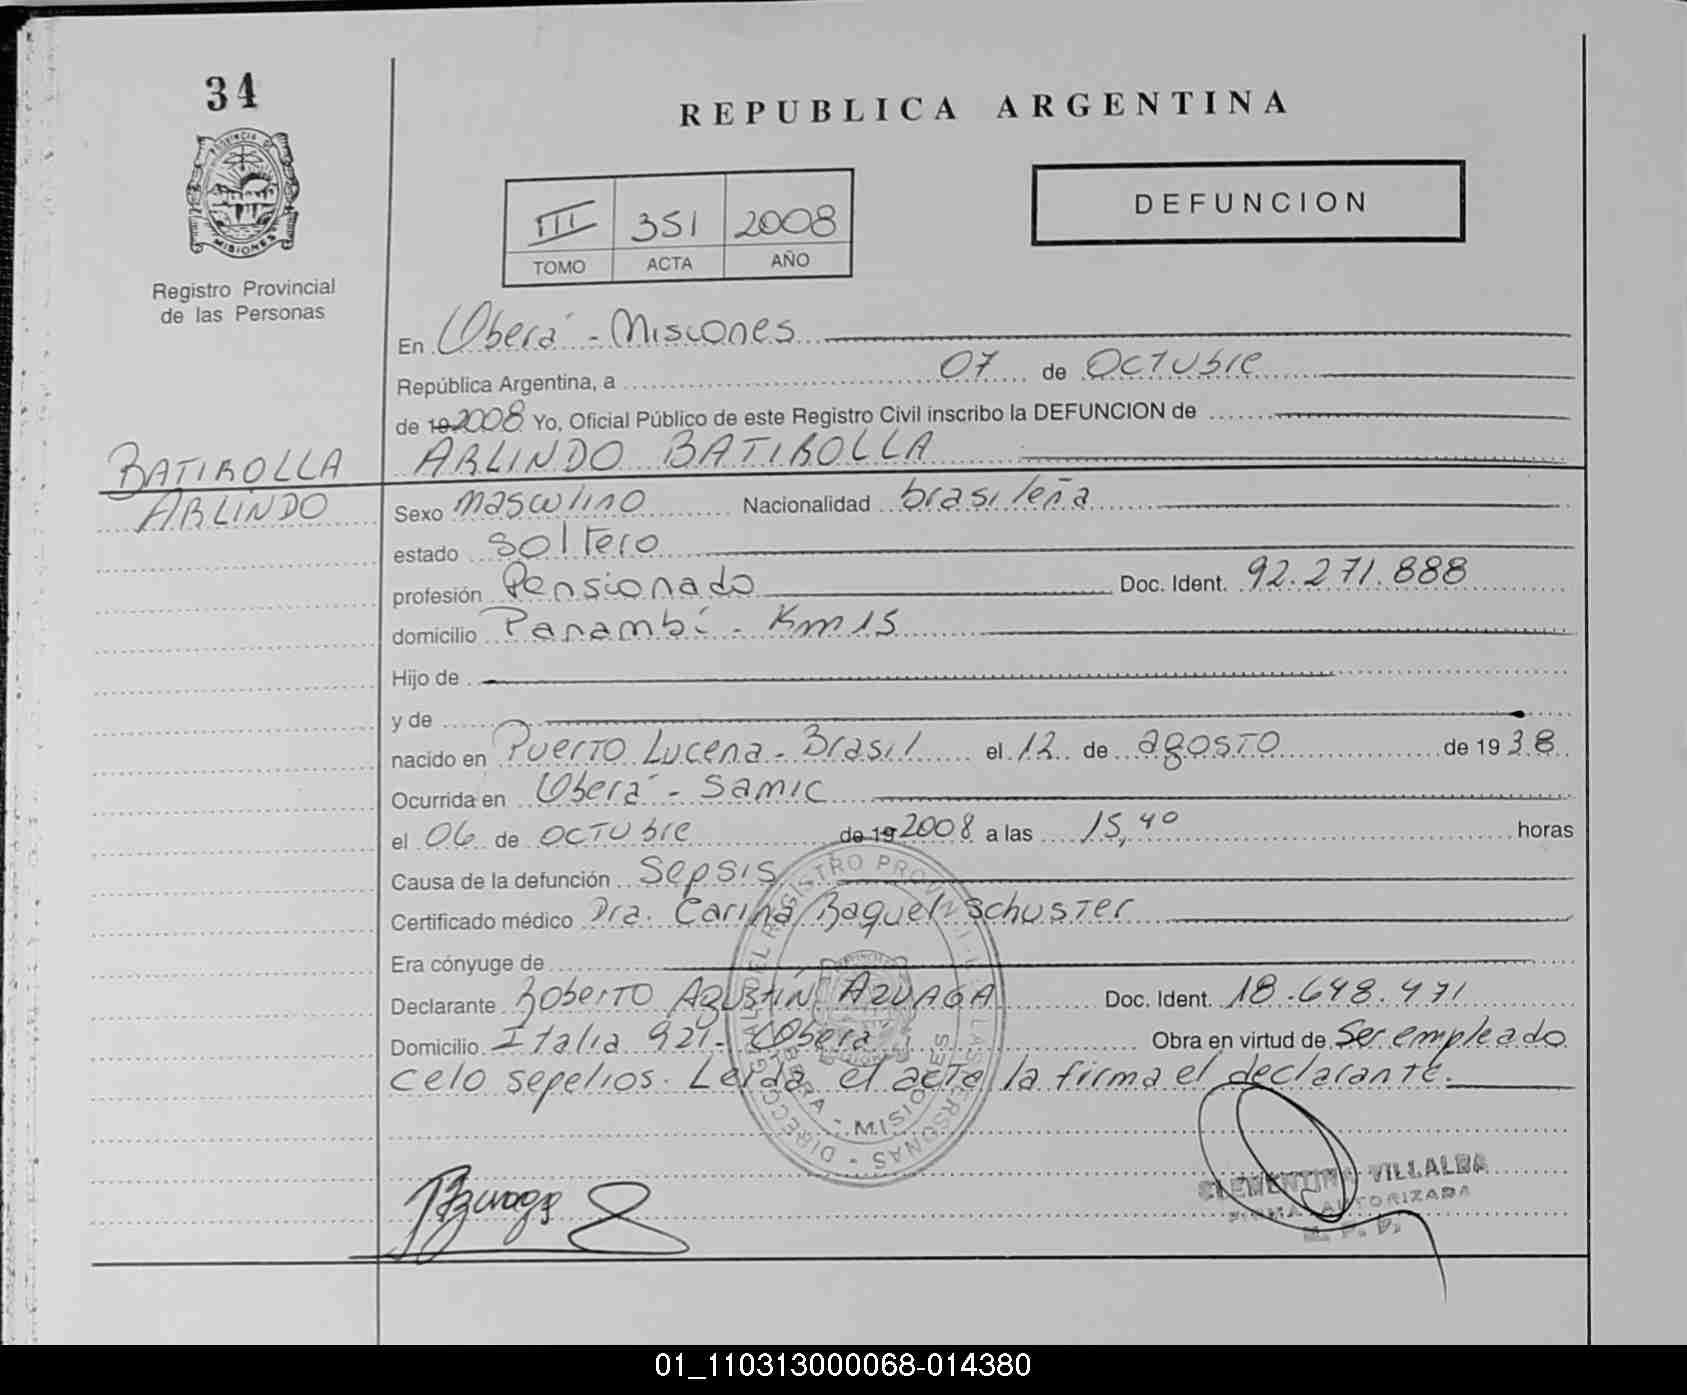 34
PROVINCIA DE
MISIONES
Registro Provincial
de las Personas
REPUBLICA ARGENTINA
DEFUNCION
III 351 2008
TOMO ACTA AÑO
En Oberá - Misiones
República Argentina, a 07 de Octubre
de 19 2008 Yo, Oficial Público de este Registro Civil inscribo la DEFUNCION de
BATIROLLA ARLINDO BATIROLLA
ARLINDO
Sexo masculino Nacionalidad brasileña
estado soltero
profesión Pensionado Doc. Ident. 92.271.888
domicilio Panambí - Km 15
Hijo de
y de
nacido en Puerto Lucena - Brasil el 12 de agosto de 1938
Ocurrida en Oberá - Samic
el 06 de octubre de 19 2008 a las 15,40 horas
Causa de la defunción Sepsis
Certificado médico Dra. Carina Raquel Schuster
Era cónyuge de
Declarante Roberto Agustín AZUAGA Doc. Ident. 18.648.471
Domicilio Italia 921 - Oberá Obra en virtud de Ser empleado
celo sepelios. Leída el acta la firma el declarante.
DIRECCION GRAL. DEL REGISTRO PROVINCIAL DE LAS PERSONAS
OBERA - MISIONES
RAzuaga
CLEMENTINA VILLALBA
FIRMA AUTORIZADA
R. P. P.
01_110313000068-014380